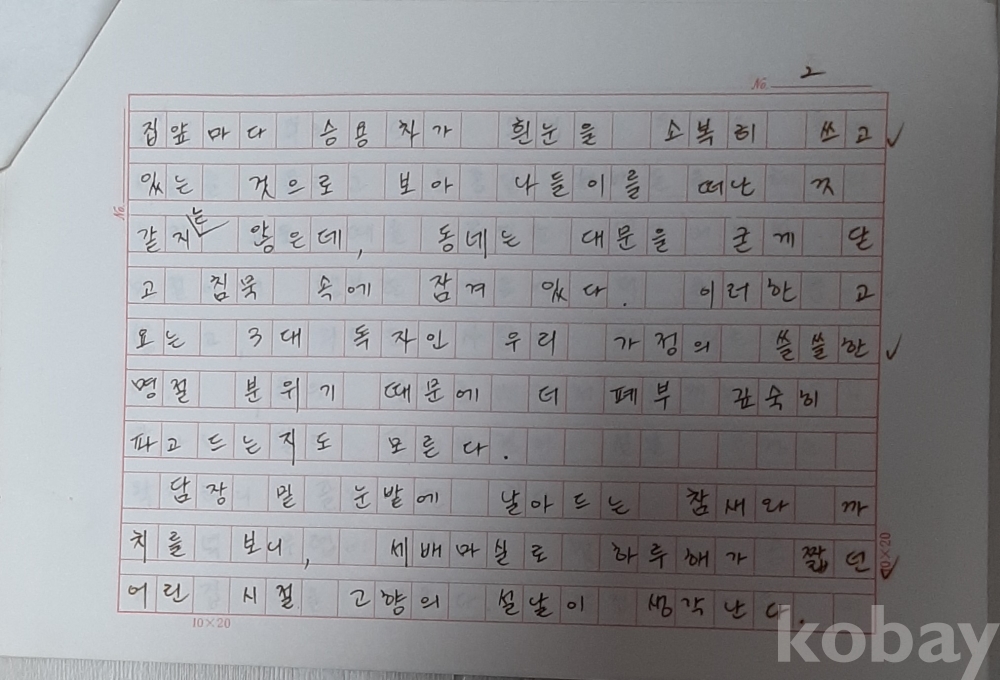 No. 2
집앞마다 승용차가 흰눈을 소복히 쓰고
있는 것으로 보아 나들이를 떠난 것
같지는 않은데, 동네는 대문을 굳게 닫
고 침묵 속에 잠겨 있다. 이러한 고
요는 3대 독자인 우리 가정의 쓸쓸한
명절 분위기 때문에 더 폐부 깊숙히
파고드는지도 모른다.
담장 밑 눈밭에 날아드는 참새와 까
치를 보니, 세배마실로 하루해가 짧던
어린 시절 고향의 설날이 생각난다.
No.
10×20
10×20
kobay